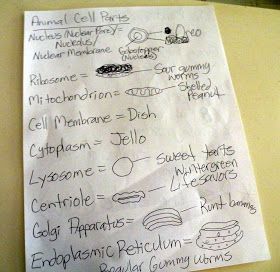 Animal Cell Parts
Nucleus (Nuclear Pore)/= Oreo
Nucleolus/
Nuclear Membrane Gobstopper (Nucleolus)
Ribosome = Sour gummy worms
Mitochondrion = Shelled Peanut
Cell Membrane = Dish
Cytoplasm = Jello
Lysosome = Sweet tarts
Wintergreen
Centriole = Lifesavors
Golgi Apparatus = Runt bananas
Endoplasmic Reticulum =
Regular Gummy worms